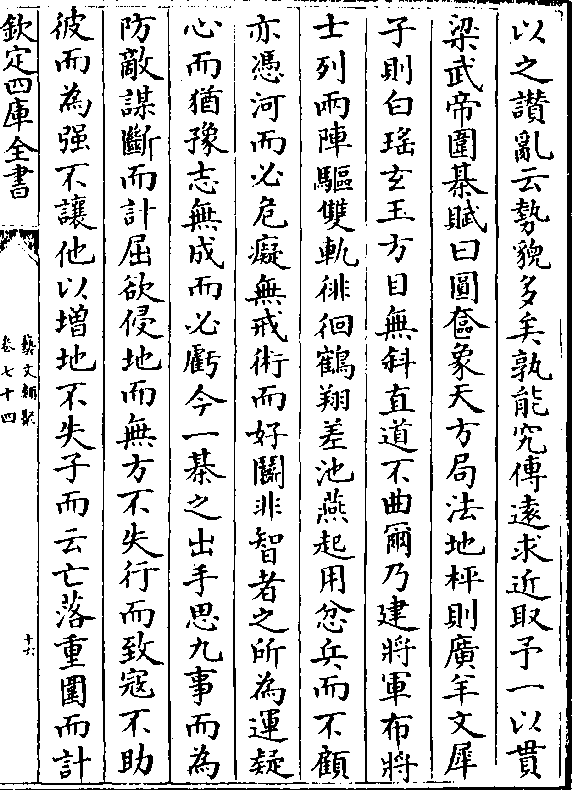 以之讃亂云勢貌多矣孰能究傳遠求近取予一以貫
梁武帝圍棊賦曰圓奩象天方局法地枰則廣羊文犀
子則白瑤玄玉方目無斜直道不曲爾乃建將軍布將
士列兩陣驅雙軌徘徊鶴翔差池燕起用忿兵而不顧
亦憑河而必危癡無戒術而好鬬非智者之所為運疑
心而猶豫志無成而必虧今一棊之出手思九事而為
防敵謀斷而計屈欲侵地而無方不失行而致寇不助
彼而為强不讓他以增地不失子而云亡落重圍而計
欽定四庫全書
藝文類聚
卷七十四
十六